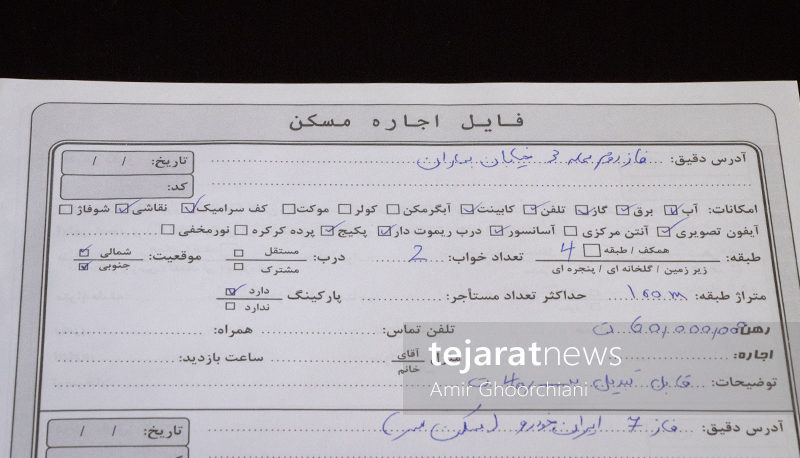 فایل اجاره مسکن
آدرس دقیق: فاز دوم محله 3 خیابان بهاران تاریخ: / /
کد:
امکانات: آب برق گاز تلفن کابینت آبگرمکن کولر موکت کف سرامیک نقاشی شوفاژ
آیفون تصویری آنتن مرکزی آسانسور درب ریموت دار پکیج پرده کرکره نورمخفی
طبقه: همکف / طبقه 4 تعداد خواب: 2 درب: مستقل موقعیت: شمالی
زیر زمین / گلخانه ای / پنجره ای مشترک جنوبی
متراژ طبقه: 100 m حداکثر تعداد مستأجر: پارکینگ دارد
ندارد
رهن: ت تلفن تماس: همراه:
اجاره: آقای ساعت بازدید:
خانم
tejaratnews
توضیحات: قابل تبدیل
Amir Ghoorchiani
آدرس دقیق: فاز 7 ایران خودرو (مسکن تاریخ: / /